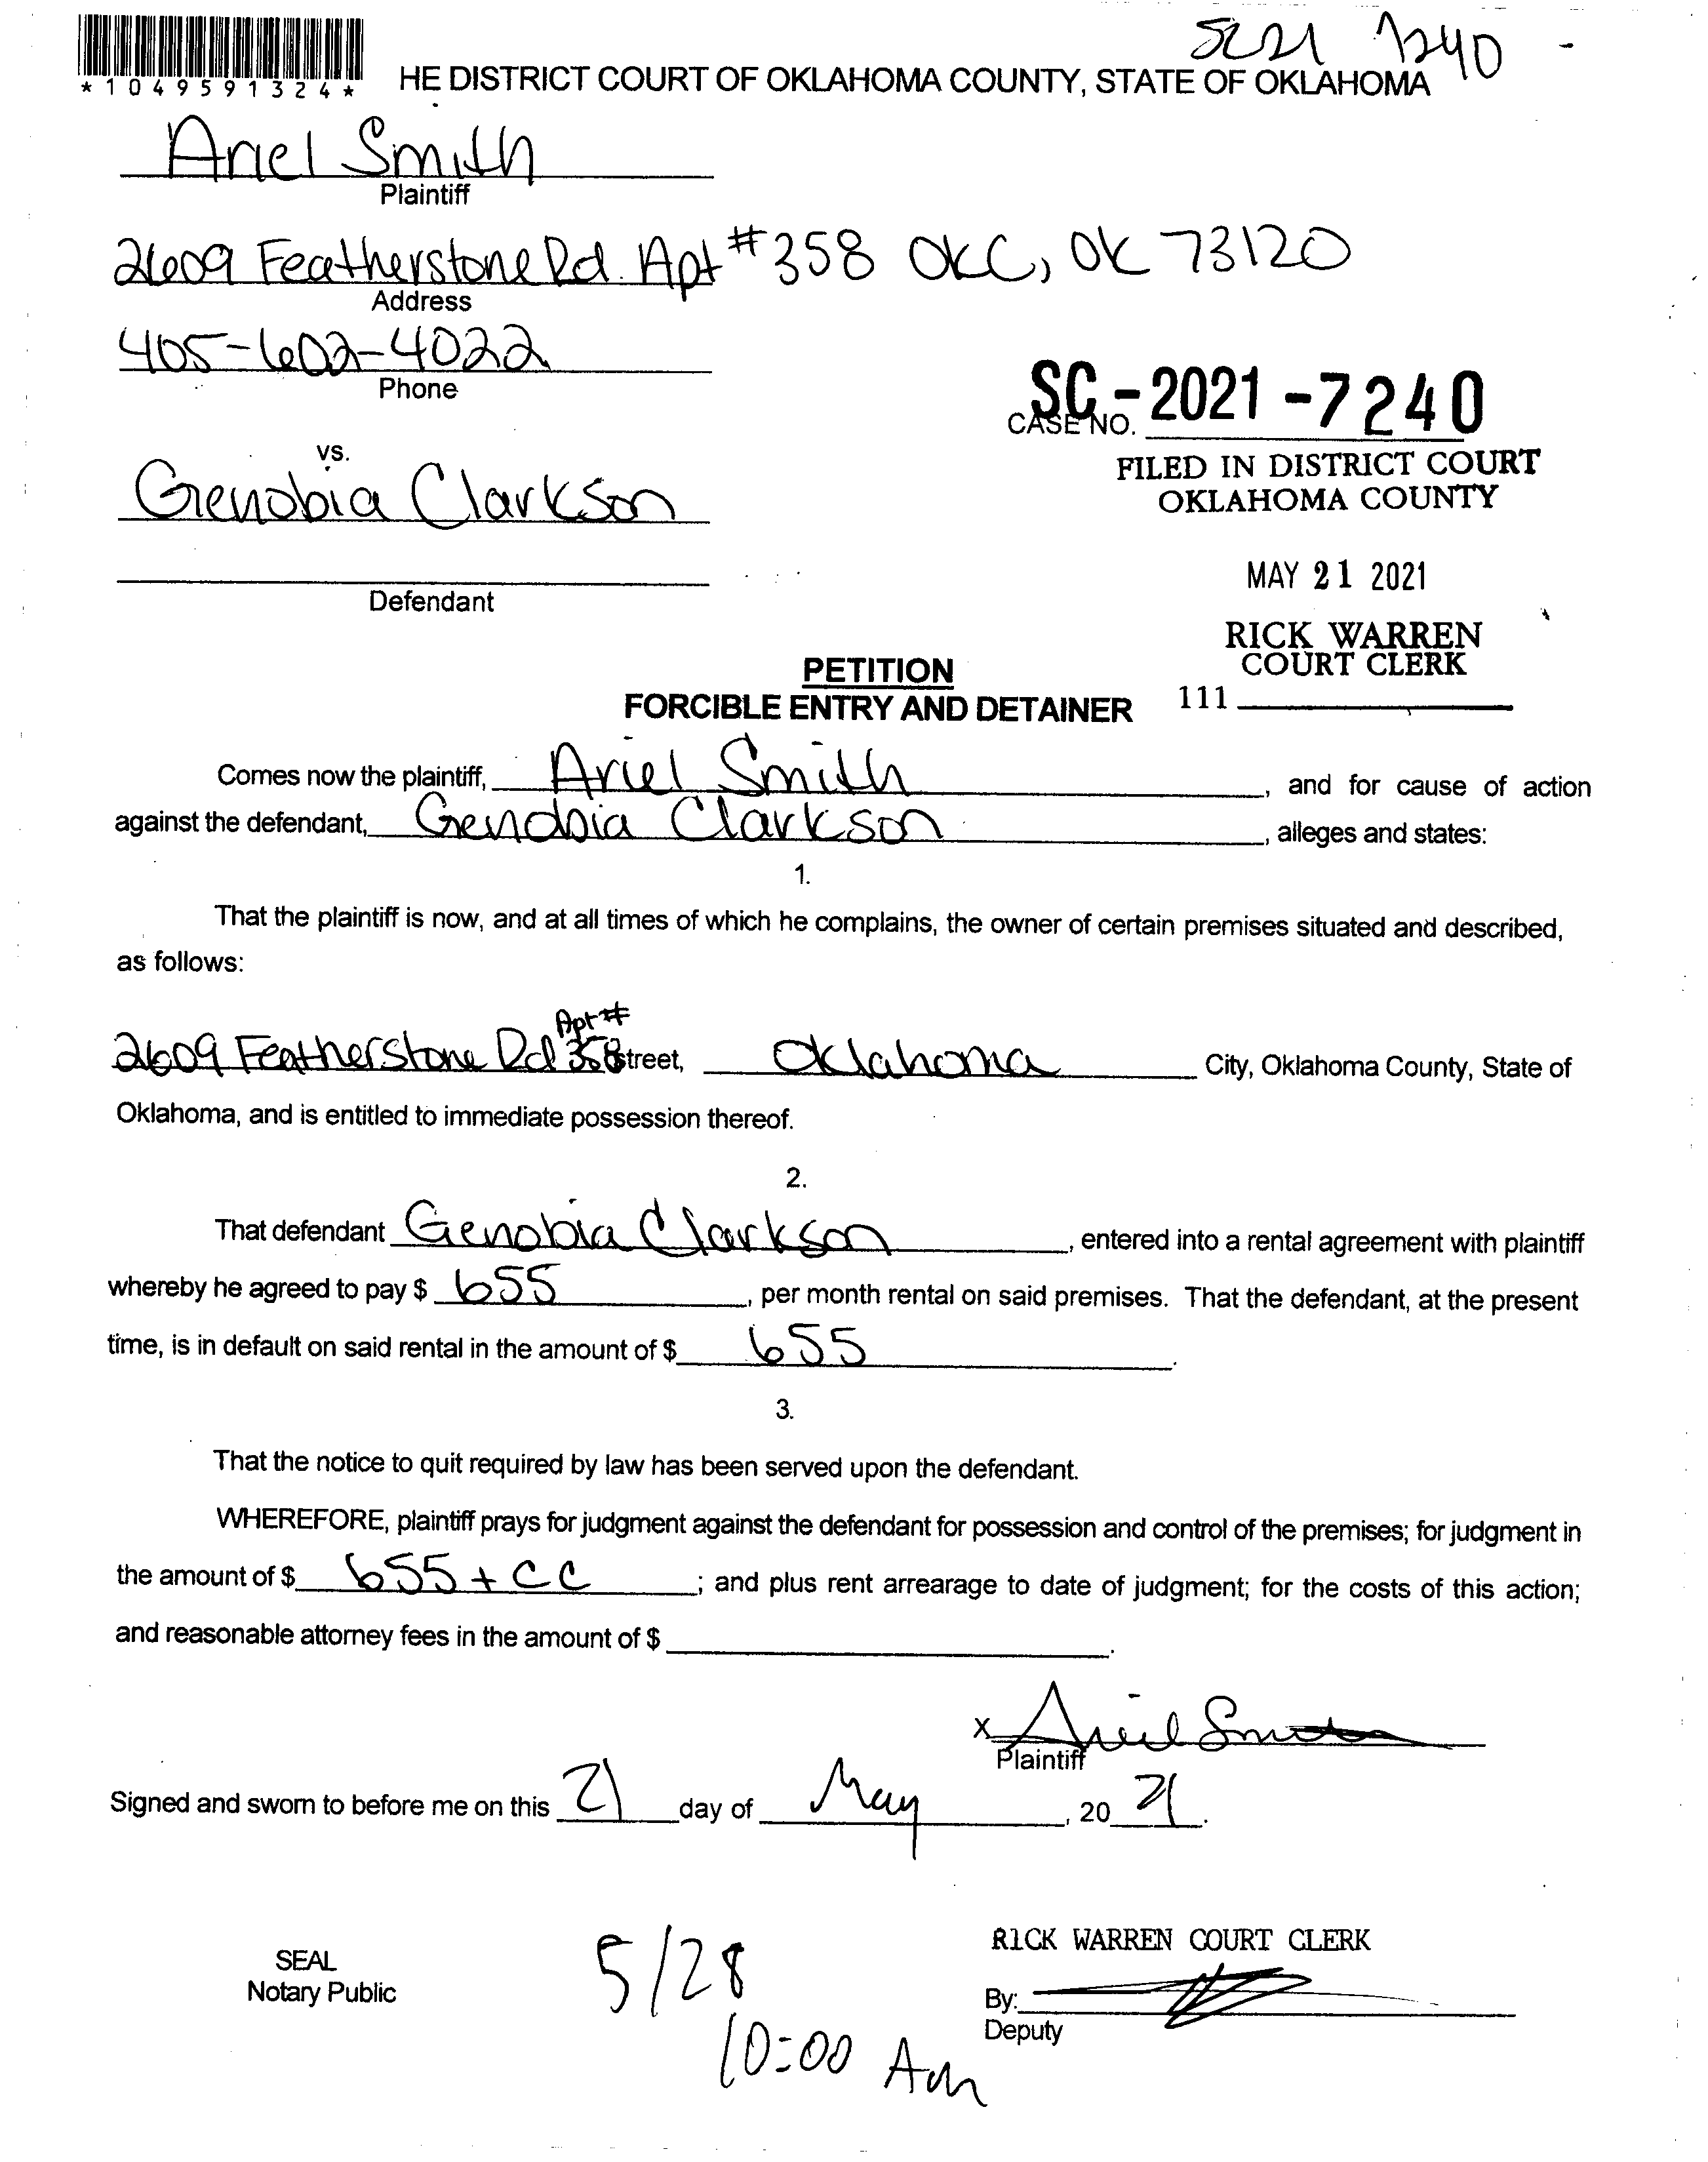 SC21 7240 -
*1049591324*
HE DISTRICT COURT OF OKLAHOMA COUNTY, STATE OF OKLAHOMA
Ariel Smith
Plaintiff
2609 Featherstone Rd. Apt #358 OKC, OK 73120
Address
405-602-4022
Phone
SC-2021-7240
CASE NO.
FILED IN DISTRICT COURT
OKLAHOMA COUNTY
vs.
Genobia Clarkson
MAY 21 2021
Defendant
RICK WARREN
COURT CLERK
111
PETITION
FORCIBLE ENTRY AND DETAINER
Comes now the plaintiff, Ariel Smith, and for cause of action
against the defendant, Genobia Clarkson, alleges and states:
1.
That the plaintiff is now, and at all times of which he complains, the owner of certain premises situated and described,
as follows:
Apt #
2609 Featherstone Rd 358 Street, Oklahoma City, Oklahoma County, State of
Oklahoma, and is entitled to immediate possession thereof.
2.
That defendant Genobia Clarkson, entered into a rental agreement with plaintiff
whereby he agreed to pay $ 655, per month rental on said premises. That the defendant, at the present
time, is in default on said rental in the amount of $ 655.
3.
That the notice to quit required by law has been served upon the defendant.
WHEREFORE, plaintiff prays for judgment against the defendant for possession and control of the premises; for judgment in
the amount of $ 655 + CC; and plus rent arrearage to date of judgment; for the costs of this action;
and reasonable attorney fees in the amount of $ .
X Ariel Smith
Plaintiff
Signed and sworn to before me on this 21 day of May, 20 21.
SEAL
Notary Public
5/28
10:00 Am
RICK WARREN COURT CLERK
By:
Deputy